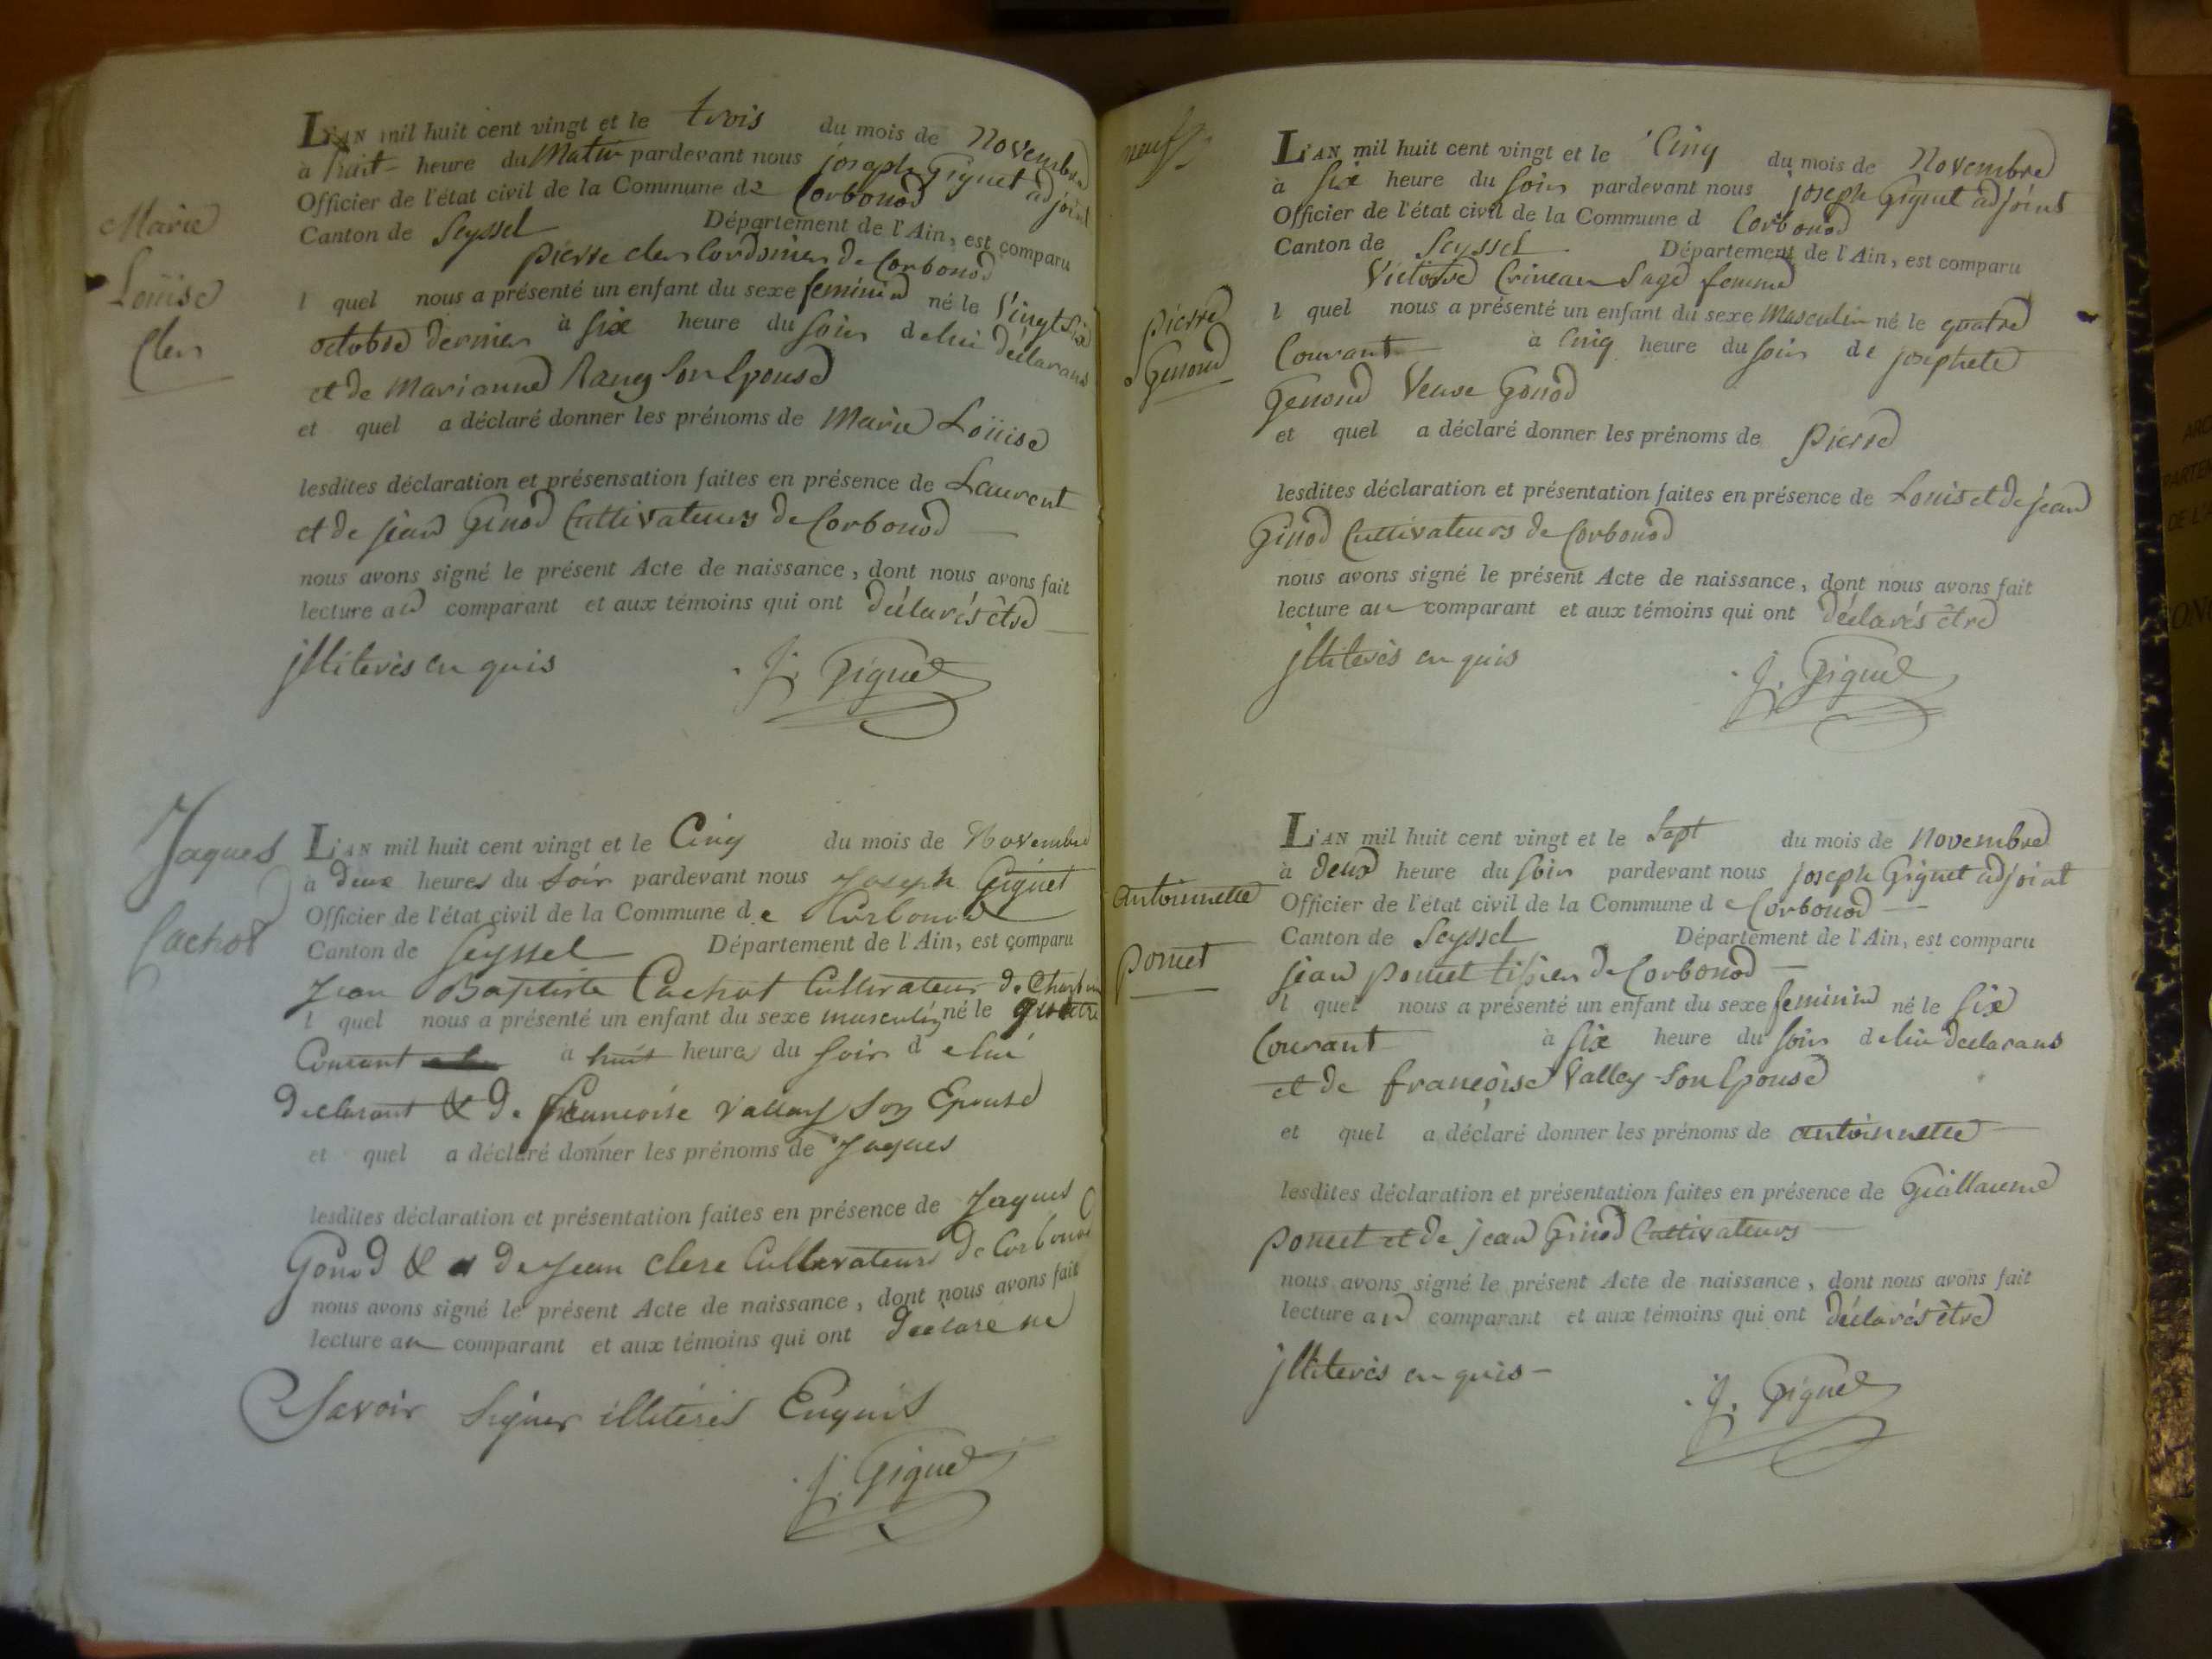 Marie
Loüise
Cler
L'AN mil huit cent vingt et le trois du mois de Novembre
à huit heure du Matin pardevant nous joseph Giguet adjoint
Officier de l'état civil de la Commune de Corbonod
Canton de Seyssel Département de l'Ain, est comparu
pierre cler Cordonier de Corbonod
l quel nous a présenté un enfant du sexe feminin né le Vingt Six
octobre dernier à six heure du soir de lui déclarant
et de Marianne son Epouse
et quel a déclaré donner les prénoms de Marie Loüise
lesdites déclaration et présensation faites en présence de Laurent
et de jean Ginod Cultivateurs de Corbonod
nous avons signé le présent Acte de naissance, dont nous avons fait
lecture au comparant et aux témoins qui ont déclarés être
jlliterés en quis
J. Giguet
Jaques
Cachot
L'AN mil huit cent vingt et le Cinq du mois de Novembre
à deux heures du soir pardevant nous Joseph Giguet
Officier de l'état civil de la Commune de Corbonod
Canton de Seyssel Département de l'Ain, est comparu
Jean Baptiste Cachot Cultivateur de
l quel nous a présenté un enfant du sexe masculin né le quatre
Courant à huit heures du soir d elui
declarant & de francoise Vallay son Epouse
et quel a déclaré donner les prénoms de Jaques
lesdites déclaration et présentation faites en présence de Jaques
Gonod & de Jean clerc Cultivateurs de Corbonod
nous avons signé le présent Acte de naissance, dont nous avons fait
lecture au comparant et aux témoins qui ont declaré ne
Savoir signer illiterés Enquis
J. Giguet
neuf
pierre
Genoud
L'AN mil huit cent vingt et le Cinq du mois de Novembre
à six heure du soir pardevant nous joseph Giguet adjoint
Officier de l'état civil de la Commune d Corbonod
Canton de Seyssel Département de l'Ain, est comparu
Victoire Crineau sage femme
l quel nous a présenté un enfant du sexe Masculin né le quatre
Courant à Cinq heure du soir de josephete
Genoud Veuve Gonod
et quel a déclaré donner les prénoms de Pierre
lesdites déclaration et présentation faites en présence de Louis et de jean
Ginod Cultivateurs de Corbonod
nous avons signé le présent Acte de naissance, dont nous avons fait
lecture au comparant et aux témoins qui ont déclarés être
jlliterés en quis
J. Giguet
antoinnette
pomet
L'AN mil huit cent vingt et le Sept du mois de Novembre
à deux heure du soir pardevant nous joseph Giguet adjoint
Officier de l'état civil de la Commune d e Corbonod
Canton de Seyssel Département de l'Ain, est comparu
jean pomet tissier de Corbonod
l quel nous a présenté un enfant du sexe feminin né le six
Courant à six heure du soir de lui declarant
et de françoise Valley son Epouse
et quel a déclaré donner les prénoms de antoinnette
lesdites déclaration et présentation faites en présence de Guillaume
pomet et de jean Ginod Cultivateurs
nous avons signé le présent Acte de naissance, dont nous avons fait
lecture au comparant et aux témoins qui ont déclarés être
jlliterés en quis
J. Giguet